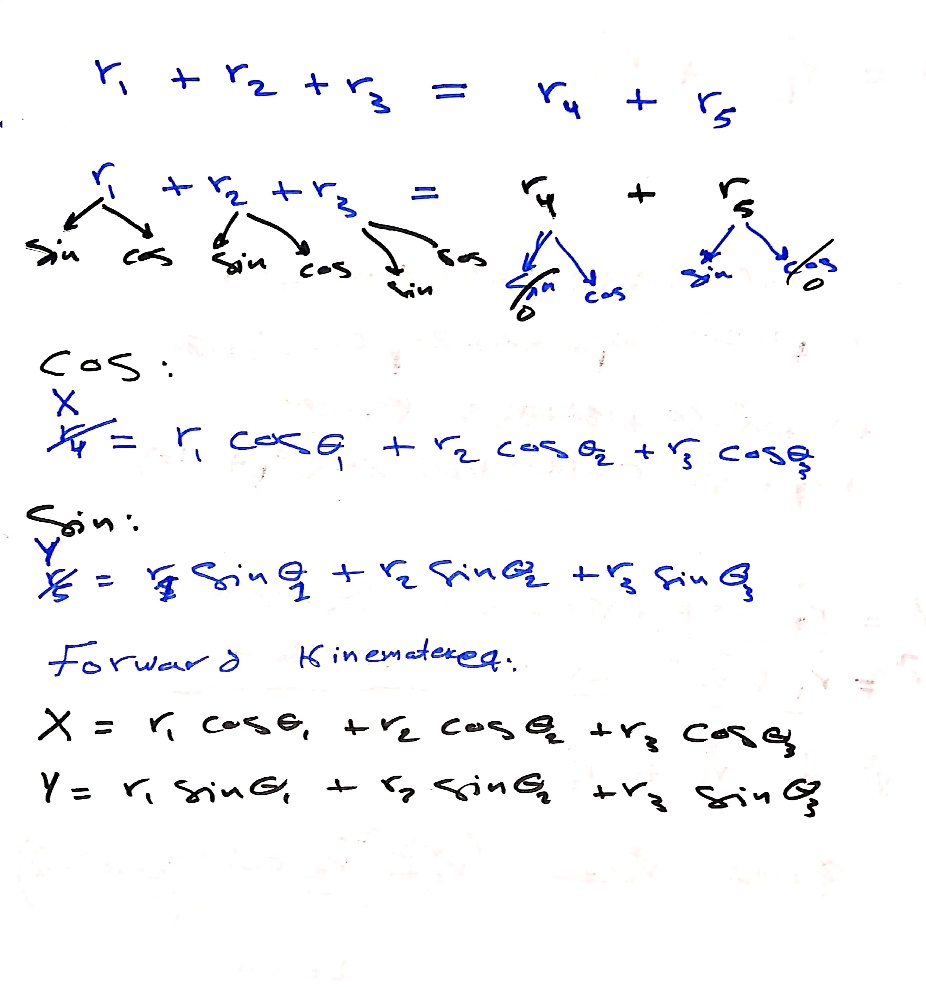 r₁ + r₂ + r₃ = r₄ + r₅
r₁ + r₂ + r₃ = r₄ + r₅
sin cos sin cos sin cos sin 0 cos sin cos 0
Cos :
X
r₄ = r₁ cosθ₁ + r₂ cosθ₂ + r₃ cosθ₃
Sin :
Y
r₅ = r₁ Sinθ₁ + r₂ Sinθ₂ + r₃ Sinθ₃
Forward
X = r₁ cosθ₁ + r₂ cosθ₂ + r₃ cosθ₃
Y = r₁ sinθ₁ + r₂ sinθ₂ + r₃ sinθ₃